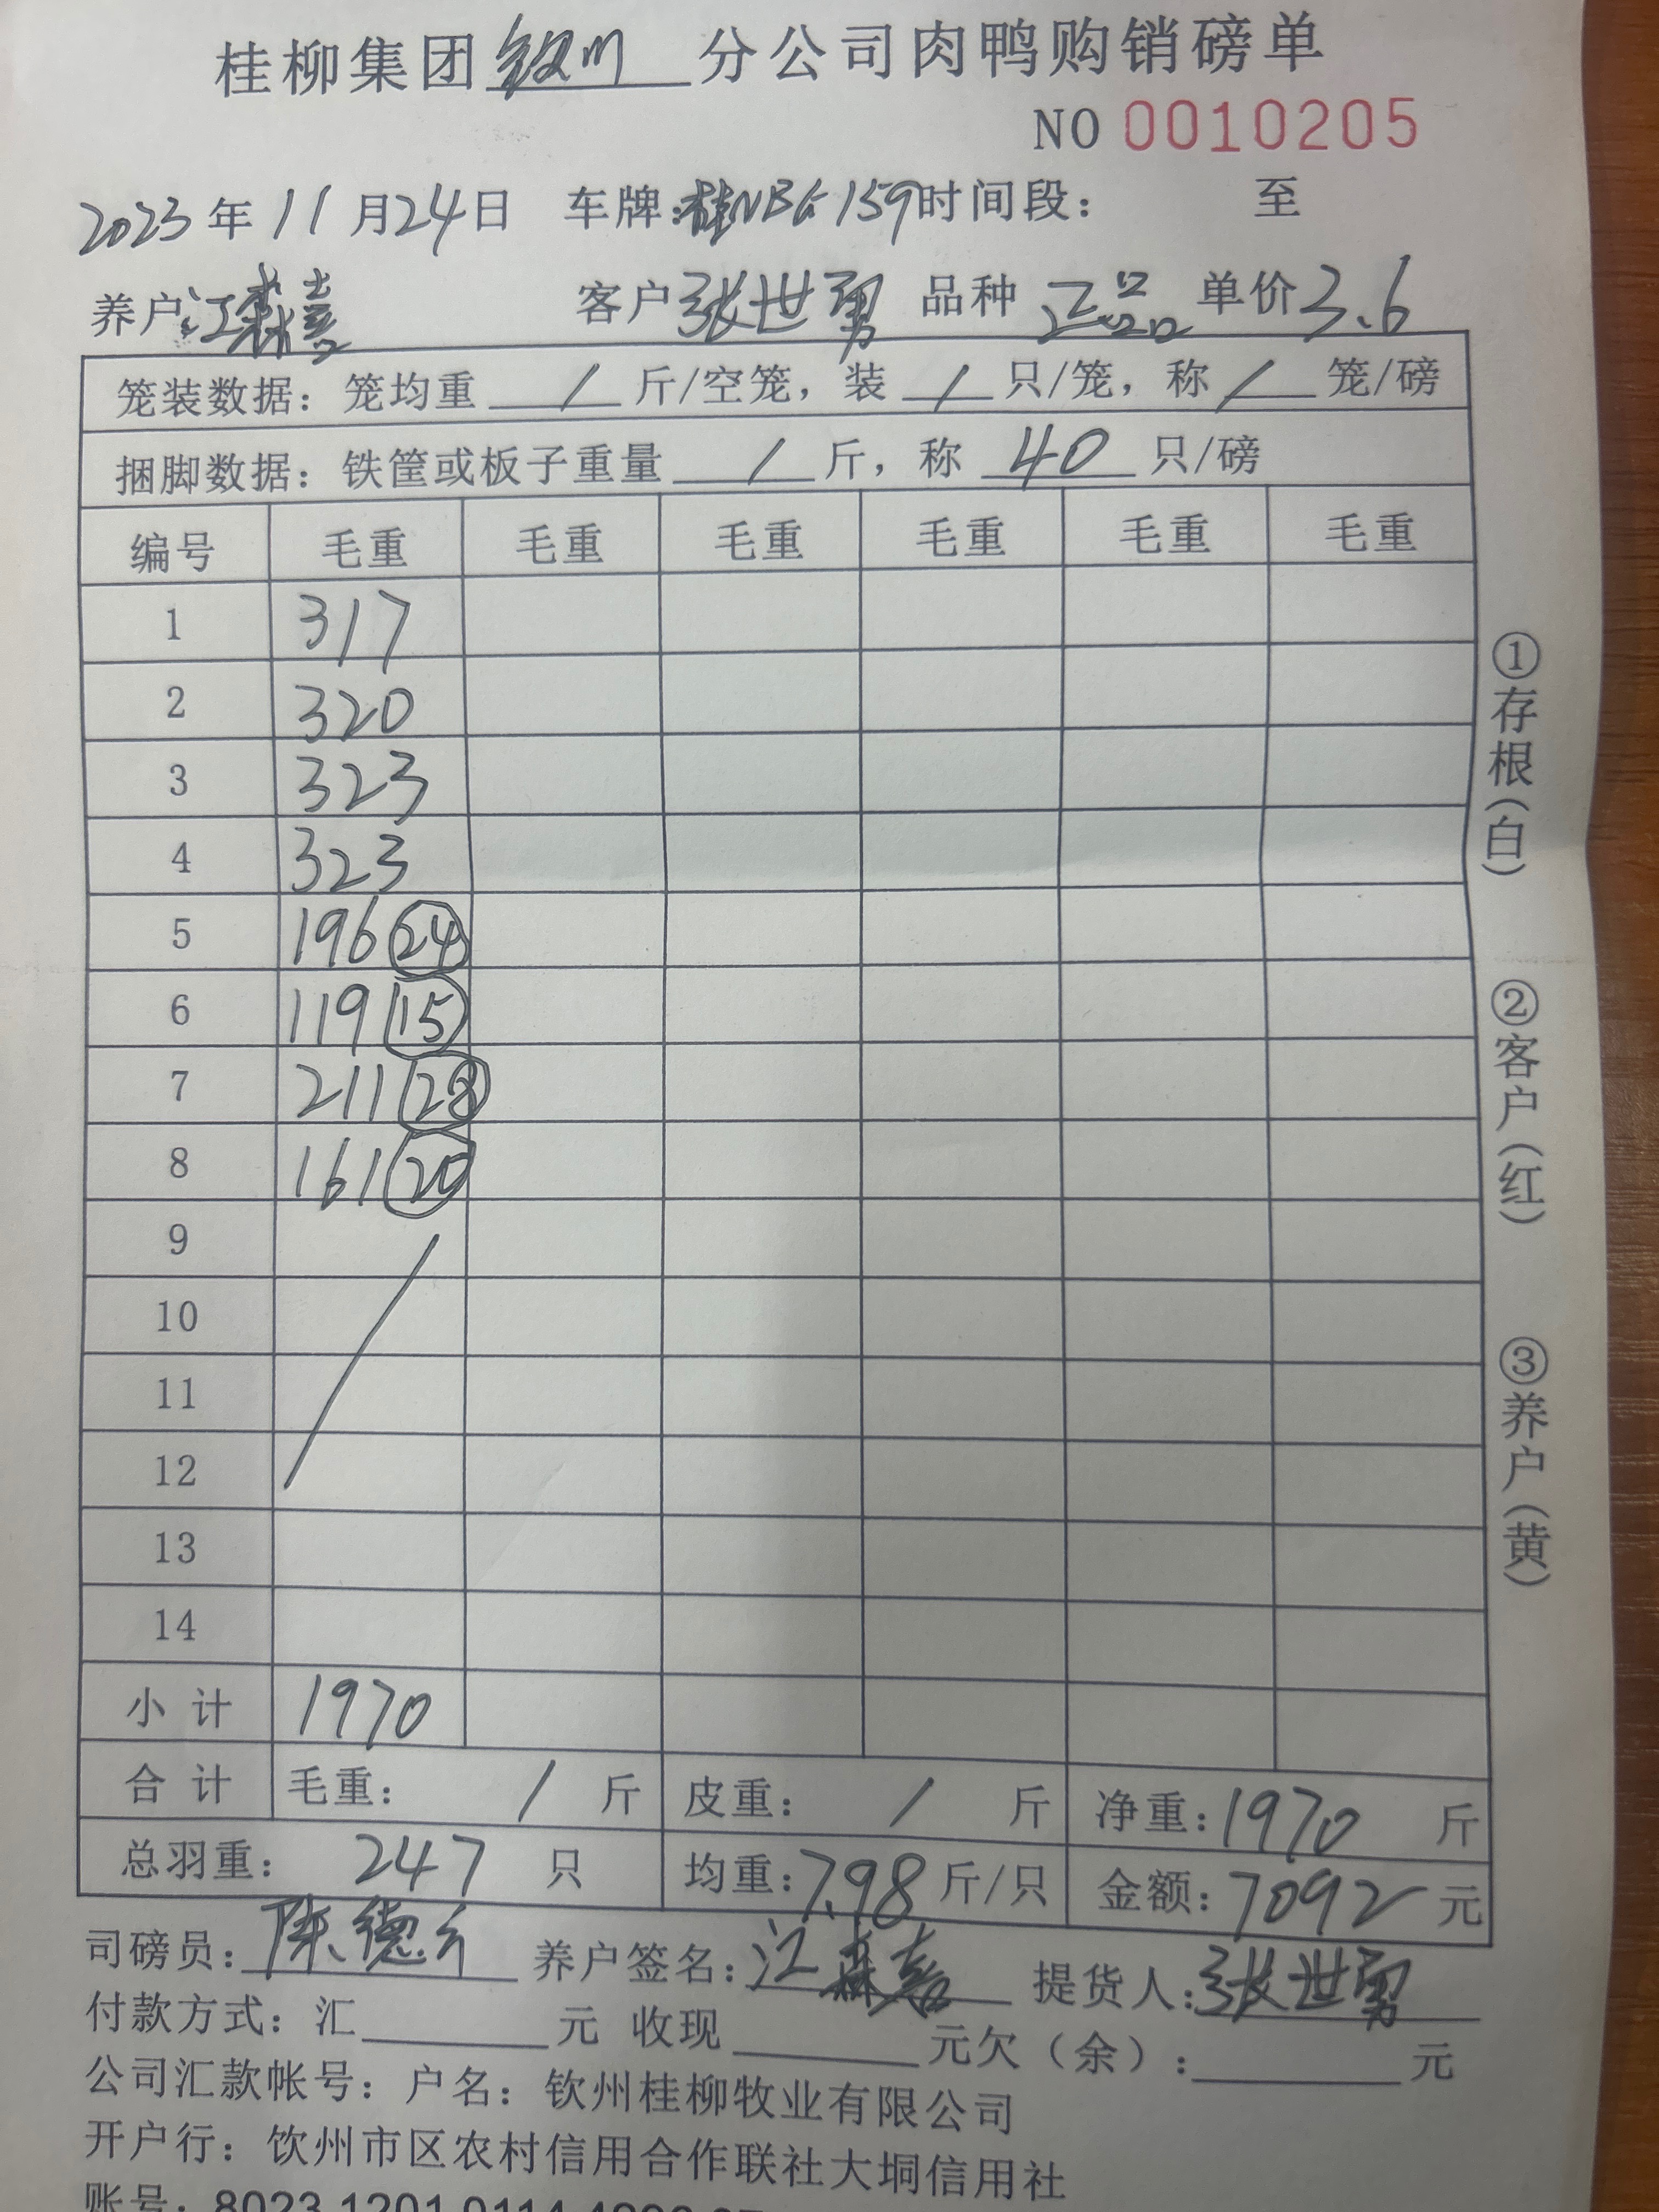 桂柳集团钦州分公司肉鸭购销磅单
NO 0010205
2023年11月24日 车牌:桂NBG159时间段: 至
养户:江森喜 客户张世勇 品种 正品 单价3.6
笼装数据: 笼均重 / 斤/空笼, 装 / 只/笼, 称 / 笼/磅
捆脚数据: 铁筐或板子重量 / 斤, 称 40 只/磅
编号 毛重 毛重 毛重 毛重 毛重 毛重
1 317
2 320
3 323
4 323
5 196 24
6 119 15
7 211 28
8 161 20
9
10
11
12
13
14
小计 1970
合计 毛重: / 斤 皮重: / 斤 净重:1970 斤
总羽重: 247 只 均重:7.98斤/只 金额:7092元
司磅员:陈德 养户签名:江森喜 提货人:张世勇
付款方式: 汇 元 收现 元欠(余): 元
公司汇款帐号: 户名: 钦州桂柳牧业有限公司
开户行: 钦州市区农村信用合作联社大垌信用社
账号: 8023 1201 0114
①存根(白)
②客户(红)
③养户(黄)